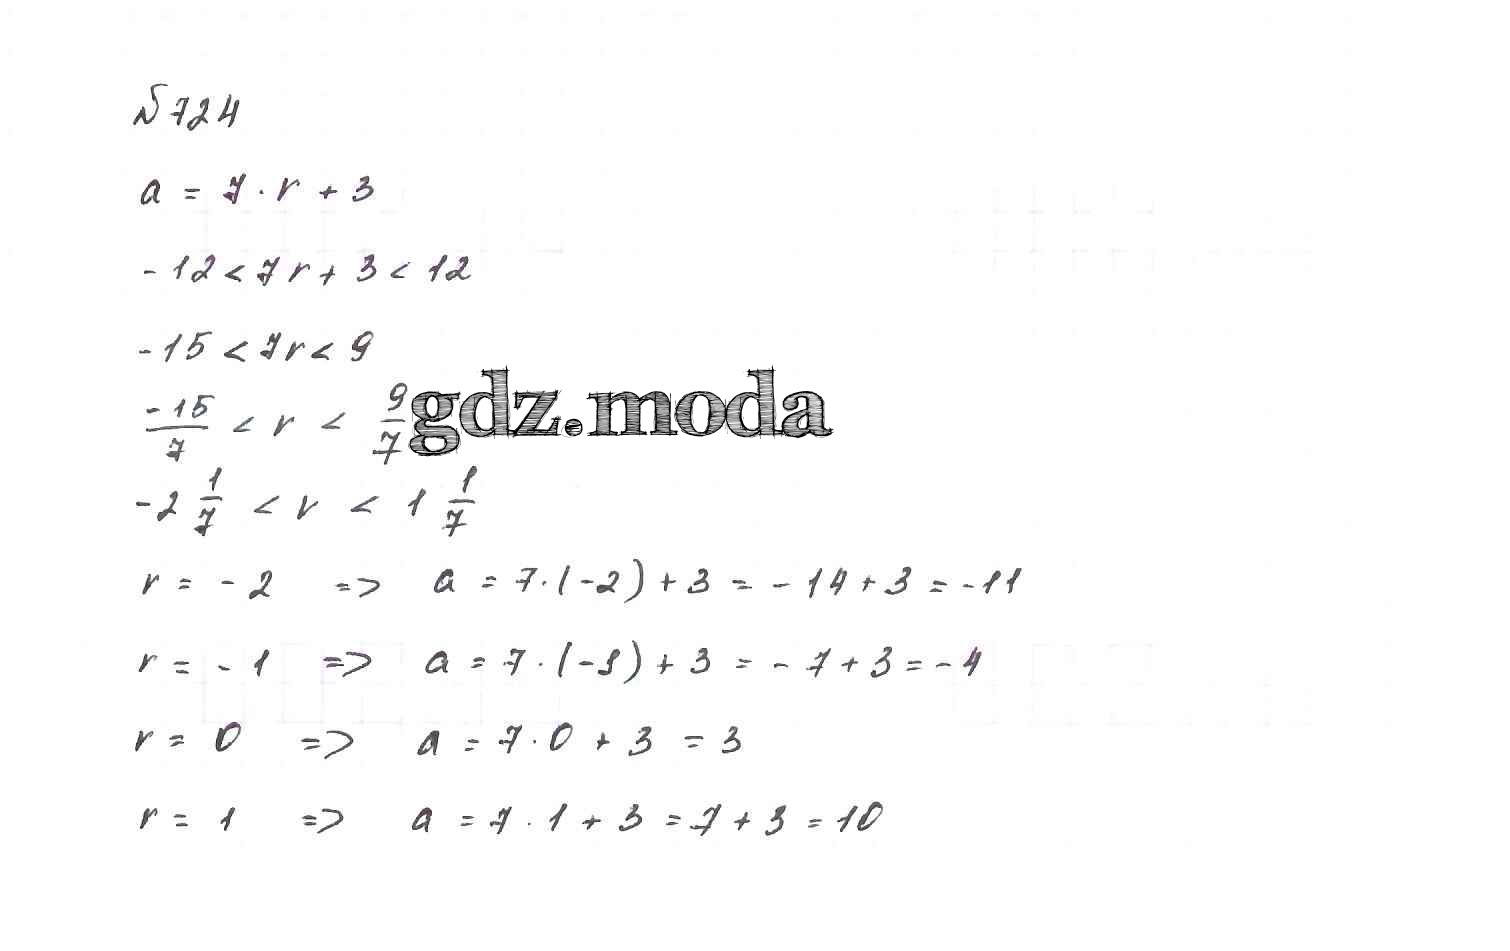 № 724
a = 7 · r + 3
- 12 < 7 r + 3 < 12
- 15 < 7r < 9
-15/7 < r < 9/7
gdz.moda
-2 1/7 < r < 1 1/7
r = - 2 => a = 7 · (-2) + 3 = - 14 + 3 = -11
r = - 1 => a = 7 · (-1) + 3 = - 7 + 3 = - 4
r = 0 => a = 7 · 0 + 3 = 3
r = 1 => a = 7 · 1 + 3 = 7 + 3 = 10